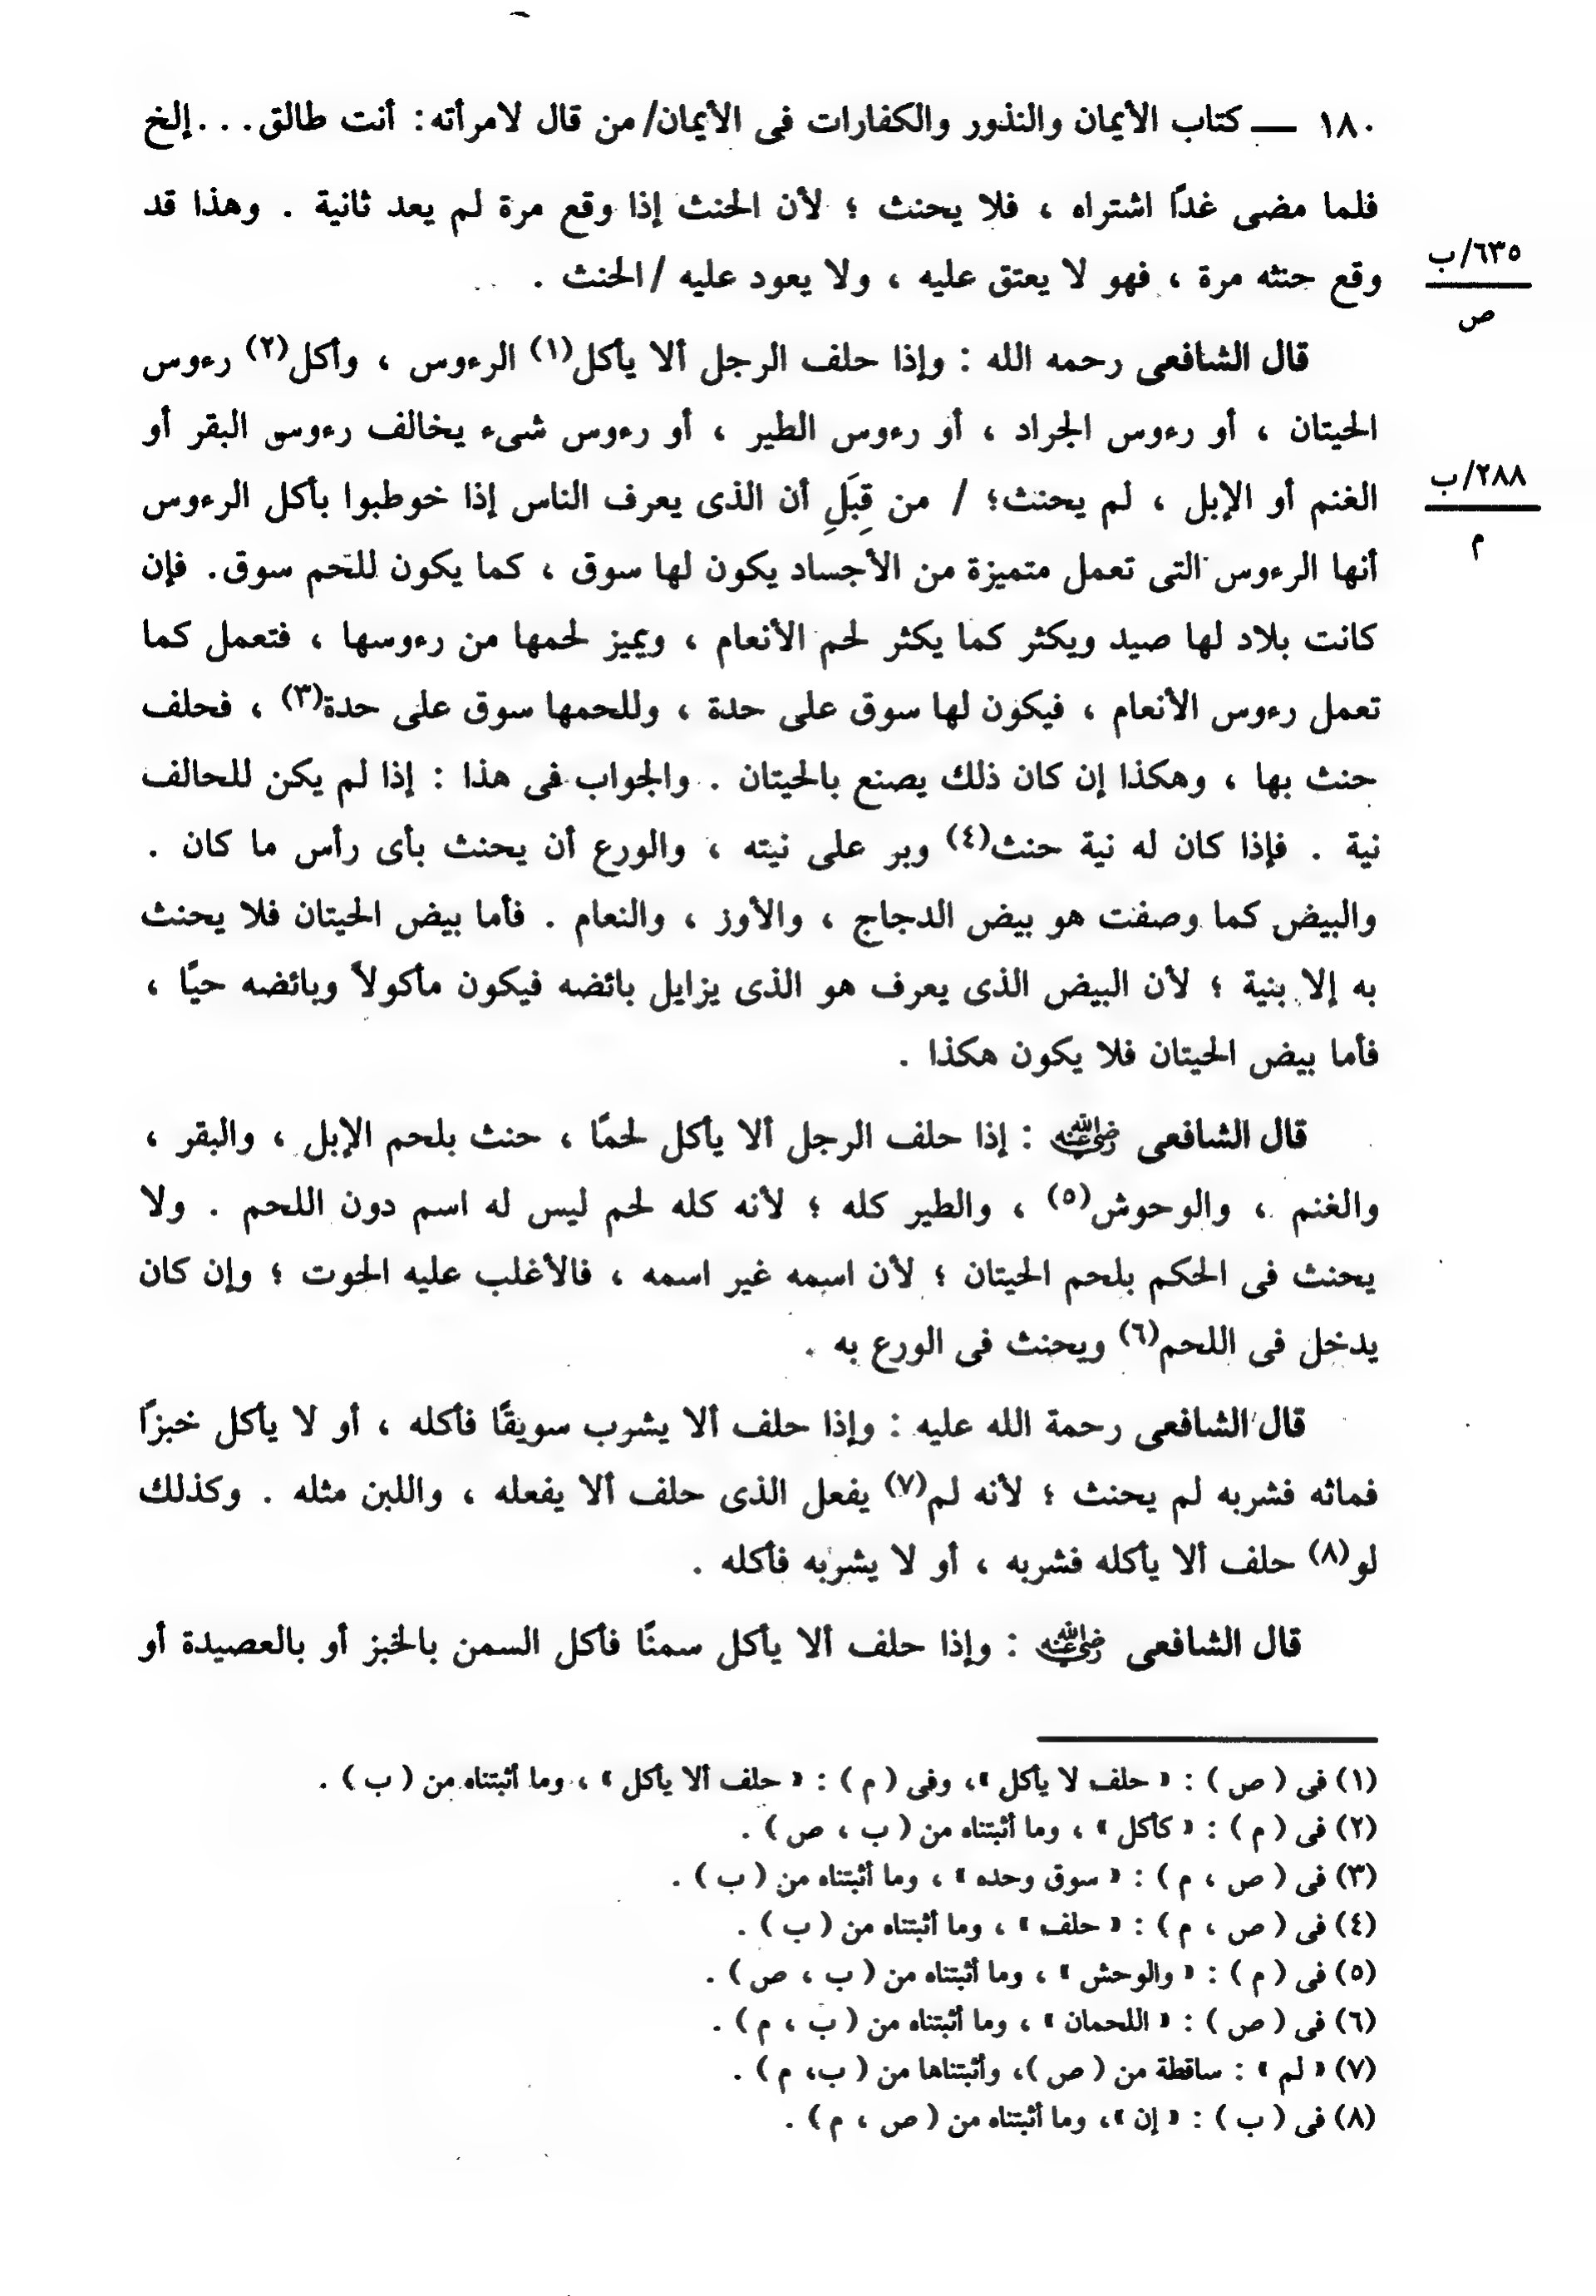 ١٨٠ ــــ كتاب الأيمان والنذور والكفارات فى الأيمان/ من قال لامرأته: أنت طالق. . .إلخ
فلما مضى غدًا اشتراه ، فلا يحنث ؛ لأن الحنث إذا وقع مرة لم يعد ثانية . وهذا قد
٦٣٥/ب
ص
وقع حنثه مرة ، فهو لا يعتق عليه ، ولا يعود عليه /الحنث .
قال الشافعى رحمه الله : وإذا حلف الرجل ألا يأكل(١) الرءوس ، وأكل(٢) رءوس
الحيتان ، أو رءوس الجراد ، أو رءوس الطير ، أو رءوس شىء يخالف رءوس البقر أو
٢٨٨/ب
م
الغنم أو الإبل ، لم يحنث؛ / من قِبَلِ أن الذى يعرف الناس إذا خوطبوا بأكل الرءوس
أنها الرءوس التى تعمل متميزة من الأجساد يكون لها سوق ، كما يكون للحم سوق. فإن
كانت بلاد لها صيد ويكثر كما يكثر لحم الأنعام ، ويميز لحمها من رءوسها ، فتعمل كما
تعمل رءوس الأنعام ، فيكون لها سوق على حدة ، وللحمها سوق على حدة(٣) ، فحلف
حنث بها ، وهكذا إن كان ذلك يصنع بالحيتان . والجواب فى هذا : إذا لم يكن للحالف
نية . فإذا كان له نية حنث(٤) وبر على نيته ، والورع أن يحنث بأى رأس ما كان .
والبيض كما وصفت هو بيض الدجاج ، والأوز ، والنعام . فأما بيض الحيتان فلا يحنث
به إلا بنية ؛ لأن البيض الذى يعرف هو الذى يزايل بائضه فيكون مأكولاً وبائضه حيًا ،
فأما بيض الحيتان فلا يكون هكذا .
قال الشافعى رضي الله عنه : إذا حلف الرجل ألا يأكل لحمًا ، حنث بلحم الإبل ، والبقر ،
والغنم ، والوحوش(٥) ، والطير كله ؛ لأنه كله لحم ليس له اسم دون اللحم . ولا
يحنث فى الحكم بلحم الحيتان ؛ لأن اسمه غير اسمه ، فالأغلب عليه الحوت ؛ وإن كان
يدخل فى اللحم(٦) ويحنث فى الورع به .
قال الشافعى رحمة الله عليه : وإذا حلف ألا يشرب سويقًا فأكله ، أو لا يأكل خبزًا
فماثه فشربه لم يحنث ؛ لأنه لم(٧) يفعل الذى حلف ألا يفعله ، واللبن مثله . وكذلك
لو(٨) حلف ألا يأكله فشربه ، أو لا يشربه فأكله .
قال الشافعى رضي الله عنه : وإذا حلف ألا يأكل سمنًا فأكل السمن بالخبز أو بالعصيدة أو
(١) فى ( ص ) : « حلف لا يأكل »، وفى ( م ) : « حلف ألا يأكل » ، وما أثبتناه من ( ب ) .
(٢) فى ( م ) : « كأكل » ، وما أثبتناه من ( ب ، ص ) .
(٣) فى ( ص ، م ) : « سوق وحده » ، وما أثبتناه من ( ب ) .
(٤) فى ( ص ، م ) : « حلف » ، وما أثبتناه من ( ب ) .
(٥) فى ( م ) : « والوحش » ، وما أثبتناه من ( ب ، ص ) .
(٦) فى ( ص ) : « اللحمان » ، وما أثبتناه من ( ب ، م ) .
(٧) « لم » : ساقطة من ( ص )، وأثبتناها من ( ب، م ) .
(٨) فى ( ب ) : « إن »، وما أثبتناه من ( ص ، م ) .